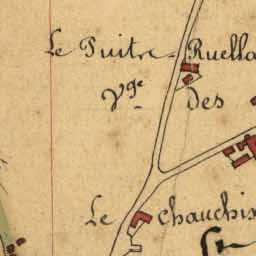 Le Puitre-Ruella
Vge des
Le Chauchis